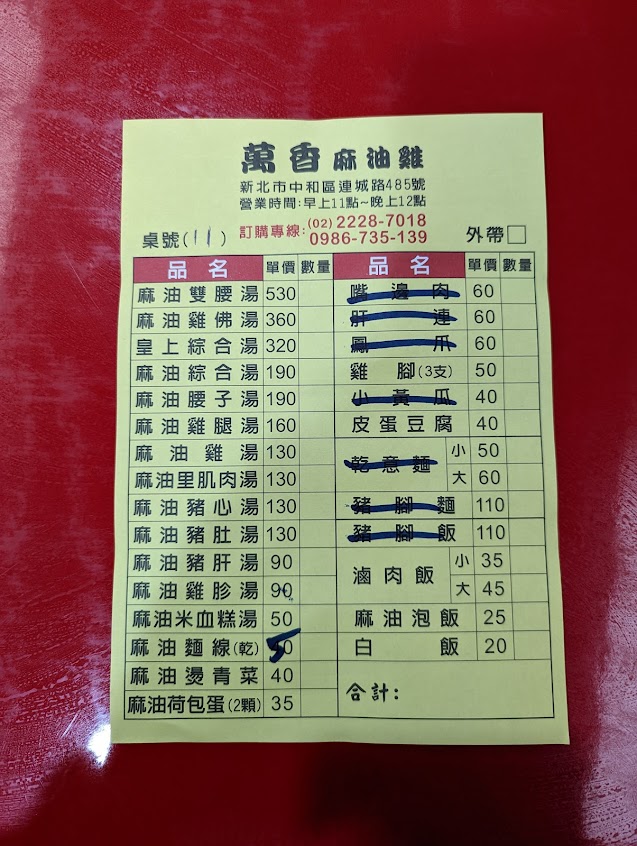 萬香麻油雞
新北市中和區連城路485號
營業時間:早上11點~晚上12點
訂購專線:(02)2228-7018
0986-735-139
桌號(11)
外帶□
品名 單價 數量
麻油雙腰湯 530
麻油雞佛湯 360
皇上綜合湯 320
麻油綜合湯 190
麻油腰子湯 190
麻油雞腿湯 160
麻油雞湯 130
麻油里肌肉湯 130
麻油豬心湯 130
麻油豬肚湯 130
麻油豬肝湯 90
麻油雞胗湯 90
麻油米血糕湯 50
麻油麵線(乾) 50
麻油燙青菜 40
麻油荷包蛋(2顆) 35
品名 單價 數量
嘴邊肉 60
肝連 60
鳳爪 60
雞腳(3支) 50
小黃瓜 40
皮蛋豆腐 40
乾意麵 小 50
大 60
豬腳麵 110
豬腳飯 110
滷肉飯 小 35
大 45
麻油泡飯 25
白飯 20
合計: